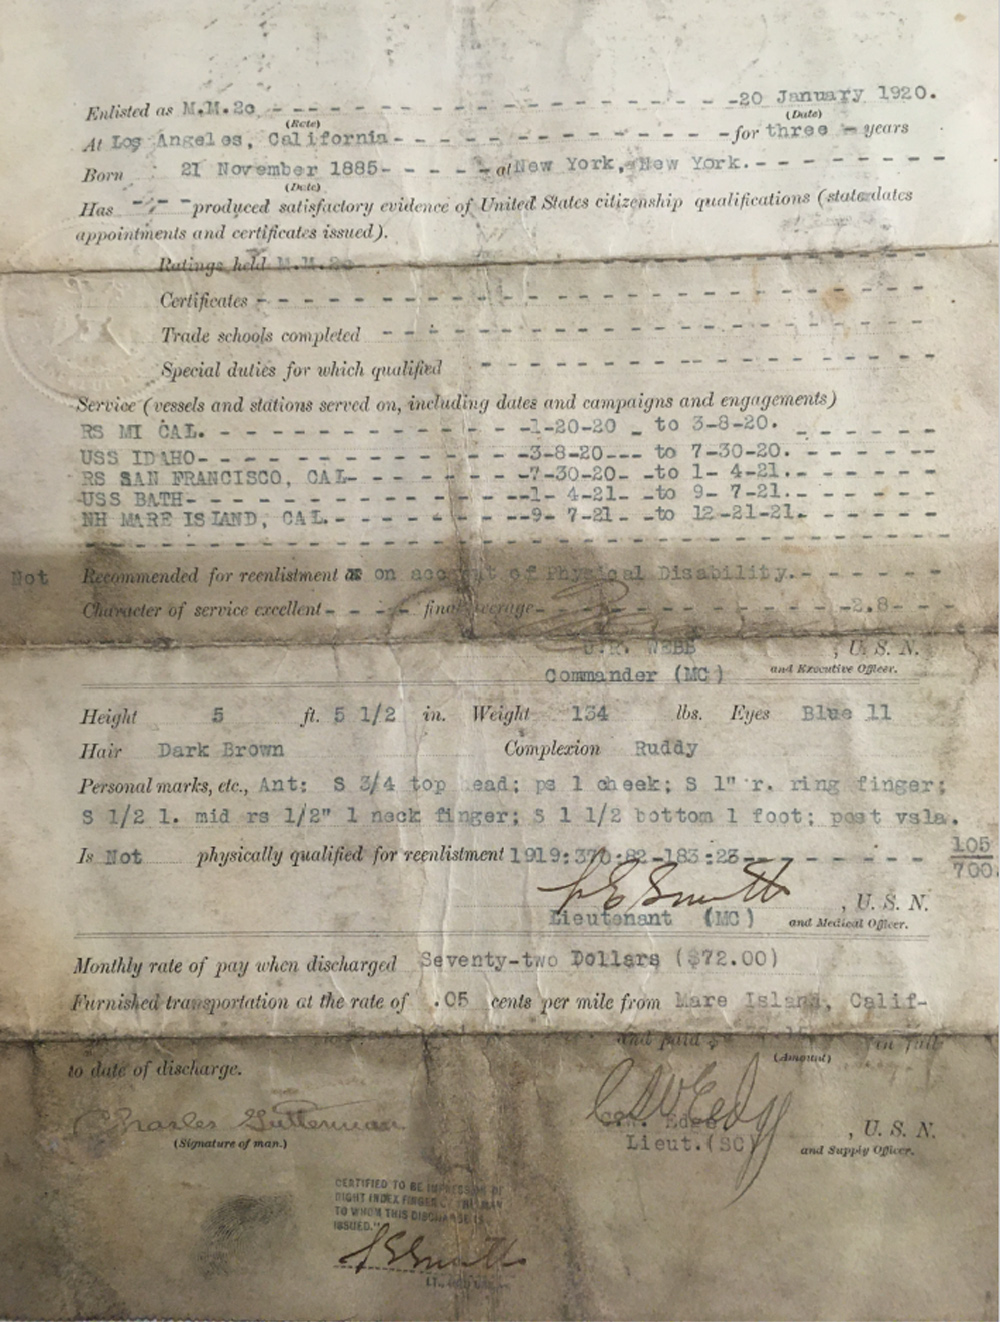 Enlisted as M.M.2c - - - - - - - - - - - - - -20 January 1920.
(Rate) (Date)
At Los Angeles, California - - - - - - - - - - - for three - years
Born 21 November 1885- - - - - at New York, New York. - - - - - - -
(Date)
Has -"-"- produced satisfactory evidence of United States citizenship qualifications (state dates
appointments and certificates issued).
Ratings held M.M.2c - - - - - - - - - - - - - - - - -
Certificates - - - - - - - - - - - - - - - - - - - -
Trade schools completed - - - - - - - - - - - - - - - -
Special duties for which qualified - - - - - - - - - - - - -
Service (vessels and stations served on, including dates and campaigns and engagements)
RS MI CAL. - - - - - - - - - - - -1-20-20 - to 3-8-20. - - - - - -
USS IDAHO- - - - - - - - - - - - -3-8-20--- to 7-30-20. - - - - - -
RS SAN FRANCISCO, CAL- - - - - - -7-30-20- -to 1- 4-21. - - - - - -
USS BATH- - - - - - - - - - - - --1- 4-21- -to 9- 7-21.- - - - - -
NH MARE ISLAND, CAL. - - - - - - --9- 7-21- -to 12-21-21. - - - - -
- - - - - - - - - - - - - - - - - - - - - - - - - - - -
Not Recommended for reenlistment as on account of Physical Disability.- - - - - -
Character of service excellent- - - - - final average- - - - - - - - - -2.8- - -
U.R. WEBB , U. S. N.
Commander (MC) and Executive Officer.
Height 5 ft. 5 1/2 in. Weight 134 lbs. Eyes Blue 11
Hair Dark Brown Complexion Ruddy
Personal marks, etc., Ant: S 3/4 top head; ps l cheek; S 1" r. ring finger;
S 1/2 l. mid rs 1/2" l neck finger; S 1 1/2 bottom l foot; post vsla.
Is Not physically qualified for reenlistment 1919:370:82-183:23- - - - - - - 105
700.
, U. S. N.
Lieutenant (MC) and Medical Officer.
Monthly rate of pay when discharged Seventy-two Dollars ($72.00)
Furnished transportation at the rate of .05 cents per mile from Mare Island, Calif-
and paid $ in full
(Amount)
to date of discharge.
Charles Gutterman
(Signature of man.)
, U. S. N.
Lieut.(SC) and Supply Officer.
CERTIFIED TO BE IMPRESSION OF
RIGHT INDEX FINGER OF THE MAN
TO WHOM THIS DISCHARGE IS
ISSUED."